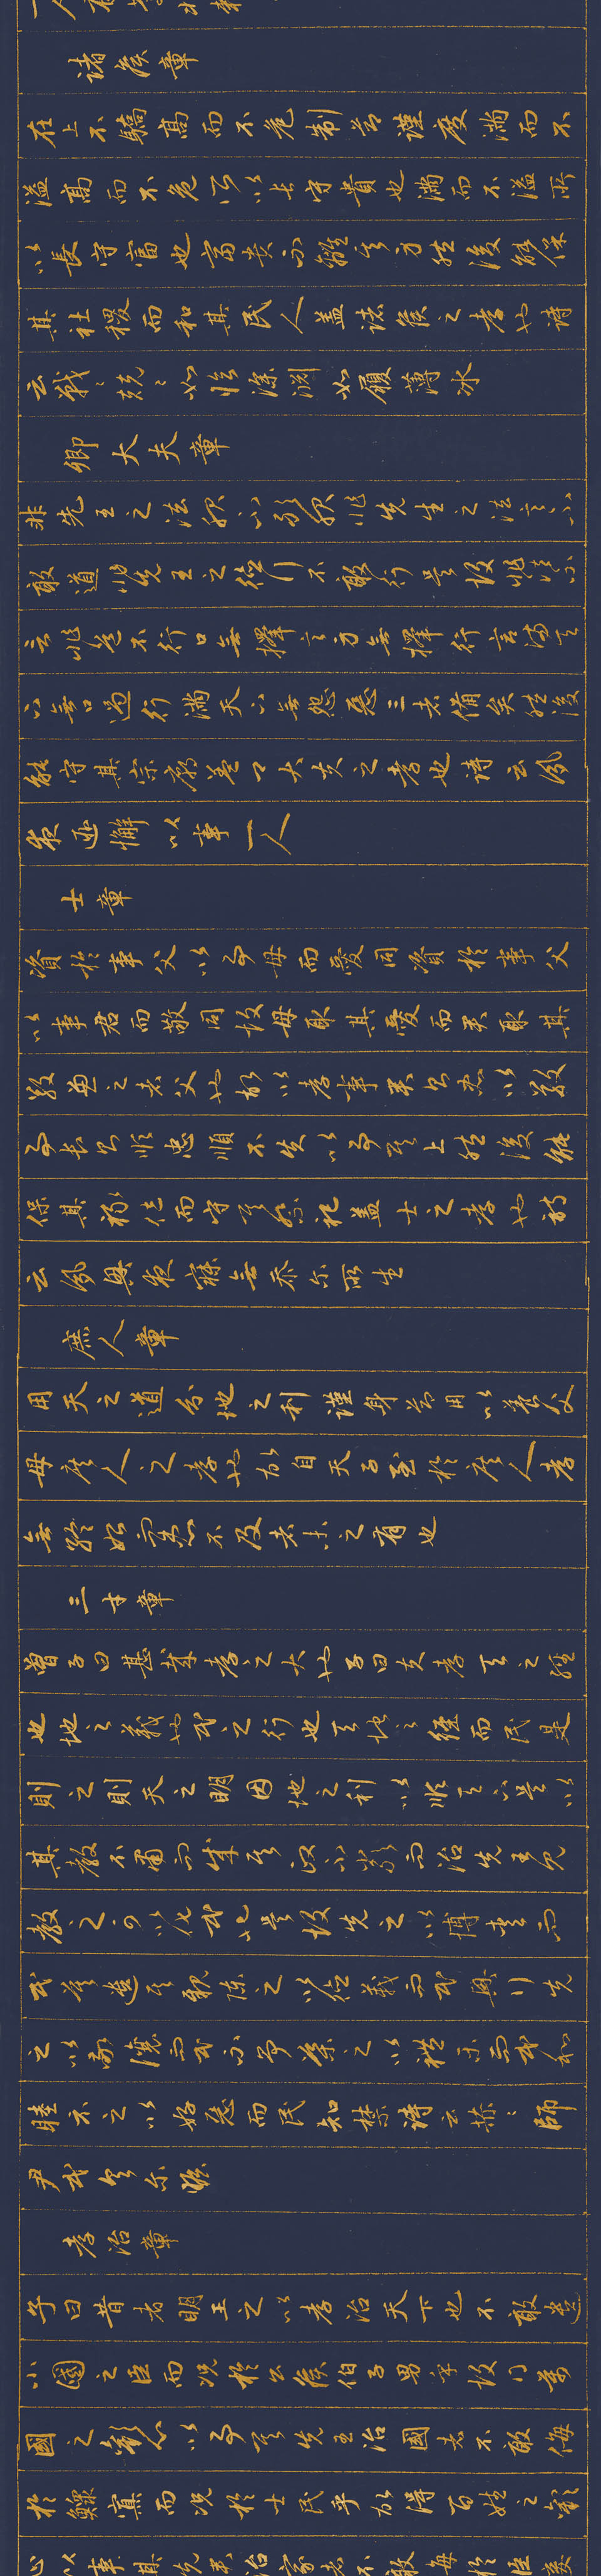 諸侯章
在上不驕高而不危制節謹度滿而不
溢高而不危所以長守貴也滿而不溢所
以長守富也富貴不離其身然後能保
其社稷而和其民人蓋諸侯之孝也詩
云戰〻兢〻如臨深淵如履薄冰
卿大夫章
非先王之法服不敢服非先王之法言不
敢道非先王之德行不敢行是故非法不
言非道不行口無擇言身無擇行言滿天
下無口過行滿天下無怨惡三者備矣然後
能守其宗廟蓋卿大夫之孝也詩云夙
夜匪懈以事一人
士章
資於事父以事母而愛同資於事父
以事君而敬同故母取其愛而君取其
敬兼之者父也故以孝事君則忠以敬
事長則順忠順不失以事其上然後能
保其祿位而守其祭祀蓋士之孝也詩
云夙興夜寐無忝爾所生
庶人章
用天之道分地之利謹身節用以養父
母庶人之孝也故自天子至於庶人孝
無終始而患不及者未之有也
三才章
曾子曰甚哉孝之大也子曰夫孝天之經
也地之義也民之行也天地之經而民是
則之則天之明因地之利以順天下是以
其教不肅而成其政不嚴而治先王見
教之可以化民也是故先之以博愛而
民莫遺其親陳之以德義而民興行先
之以敬讓而民不爭導之以禮樂而民和
睦示之以好惡而民知禁詩云赫〻師
尹民具爾瞻
孝治章
子曰昔者明王之以孝治天下也不敢遺
小國之臣而況於公侯伯子男乎故得萬
國之歡心以事其先王治國者不敢侮
於鰥寡而況於士民乎故得百姓之歡
心以事其先君治家者不敢侮於臣妾